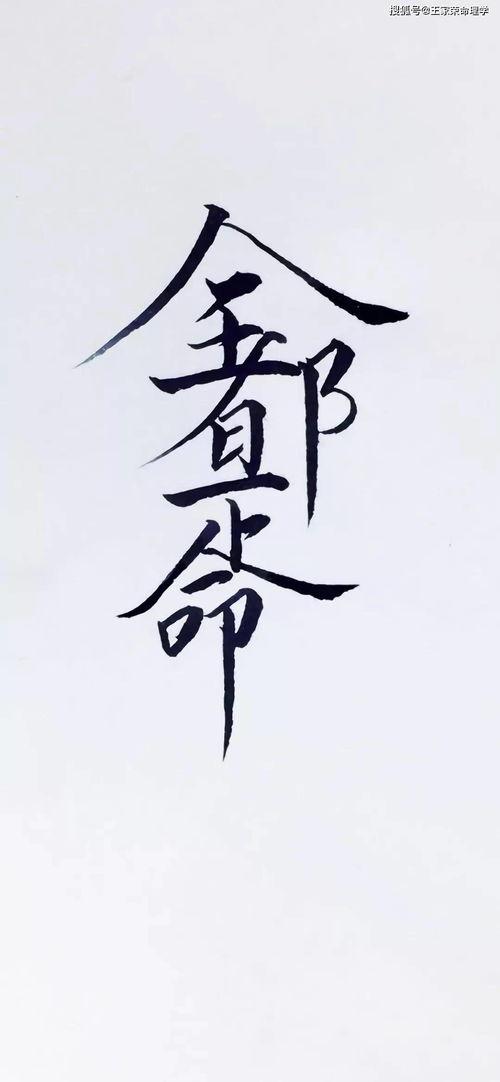 搜狐号@王家荣命理学
全都是命